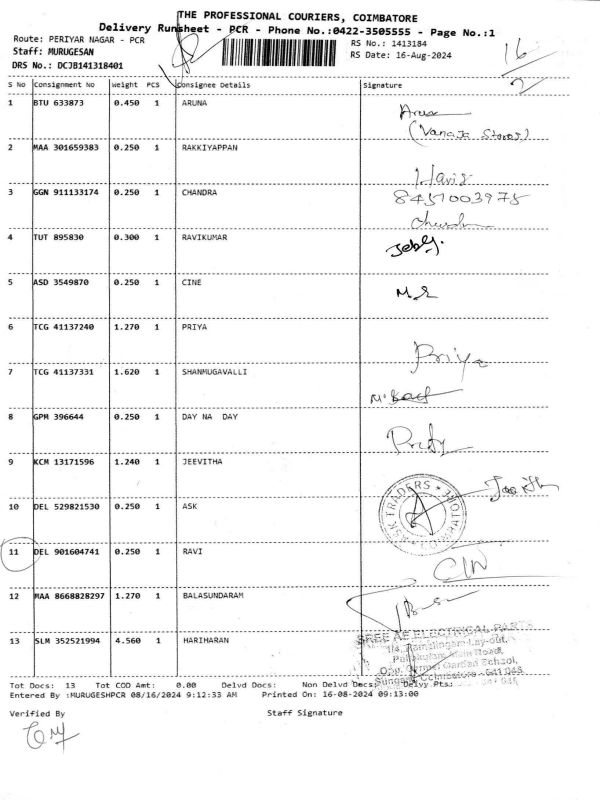 THE PROFESSIONAL COURIERS, COIMBATORE
Delivery Runsheet - PCR - Phone No.:0422-3505555 - Page No.:1
Route: PERIYAR NAGAR - PCR RS No.: 1413184
Staff: MURUGESAN RS Date: 16-Aug-2024
DRS No.: DCJB141318401
16
2
S No Consignment No Weight PCS Consignee Details Signature
1 BTU 633873 0.450 1 ARUNA
(Vanaja Stores)
2 MAA 301659383 0.250 1 RAKKIYAPPAN
3 GGN 911133174 0.250 1 CHANDRA
4 TUT 895830 0.300 1 RAVIKUMAR
5 ASD 3549870 0.250 1 CINE
6 TCG 41137240 1.270 1 PRIYA
Priya
7 TCG 41137331 1.620 1 SHANMUGAVALLI
8 GPM 396644 0.250 1 DAY NA DAY
9 KCM 13171596 1.240 1 JEEVITHA
10 DEL 529821530 0.250 1 ASK
ASK TRADERS
11 DEL 901604741 0.250 1 RAVI
12 MAA 8668828297 1.270 1 BALASUNDARAM
13 SLM 352521994 4.560 1 HARIHARAN
SREE AE ELECTRICAL PARTS
Tot Docs: 13 Tot COD Amt: 0.00 Delvd Docs: Non Delvd Docs: Delvy Pts:
Entered By :MURUGESHPCR 08/16/2024 9:12:33 AM Printed On: 16-08-2024 09:13:00
Verified By Staff Signature